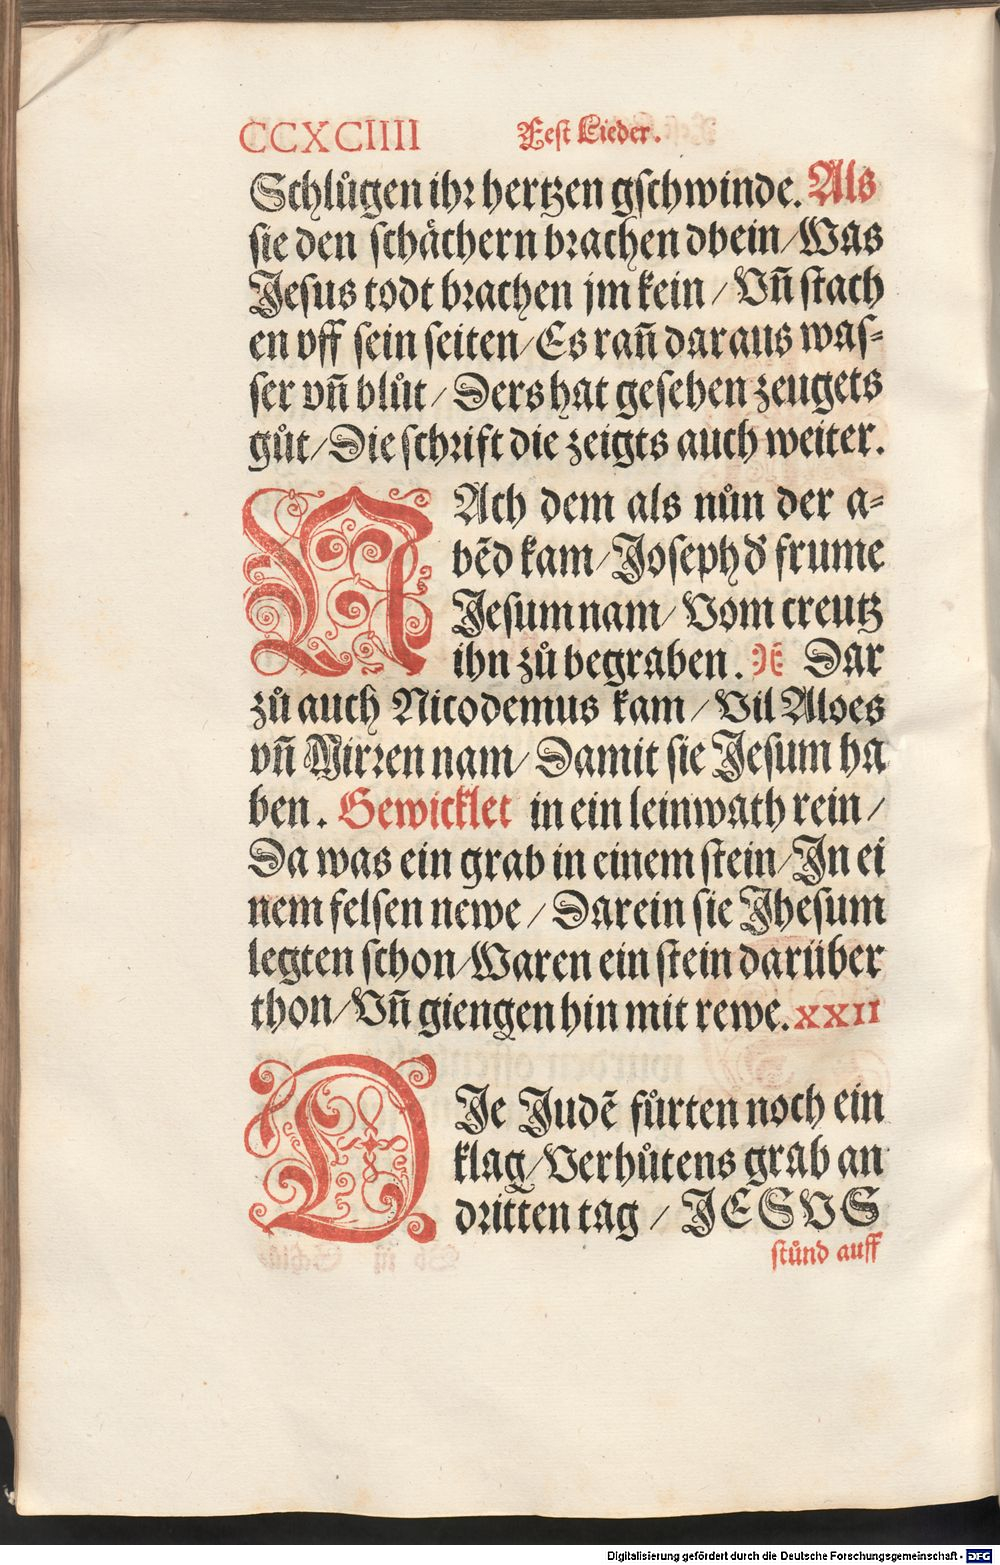 CCXCIIII Fest Lieder.
Schlůgen ihr hertzen gschwinde. Als
sie den schächern brachen dbein/Was
Jesus todt brachen jm kein/Vñ stach
en vff sein seiten/Es rañ daraus was-
ser vñ blůt/Ders hat gesehen zeugets
gůt/Die schrift die zeigts auch weiter.
NAch dem als nůn der a-
bēd kam/Joseph d̕ frume
Jesum nam/Vom creutz
ihn zů begraben. Dar
zů auch Nicodemus kam/Vil Aloes
vñ Mirren nam/Damit sie Jesum ha
ben. Gewicklet in ein leinwath rein/
Da was ein grab in einem stein/In ei
nem felsen newe/Darein sie Jhesum
legten schon/Waren ein stein darüber
thon/Vñ giengen hin mit rewe. XXII
DIe Judē fůrten noch ein
klag/Verhůtens grab an
dritten tag/JESVS
stůnd auff
Digitalisierung gefördert durch die Deutsche Forschungsgemeinschaft - DFG